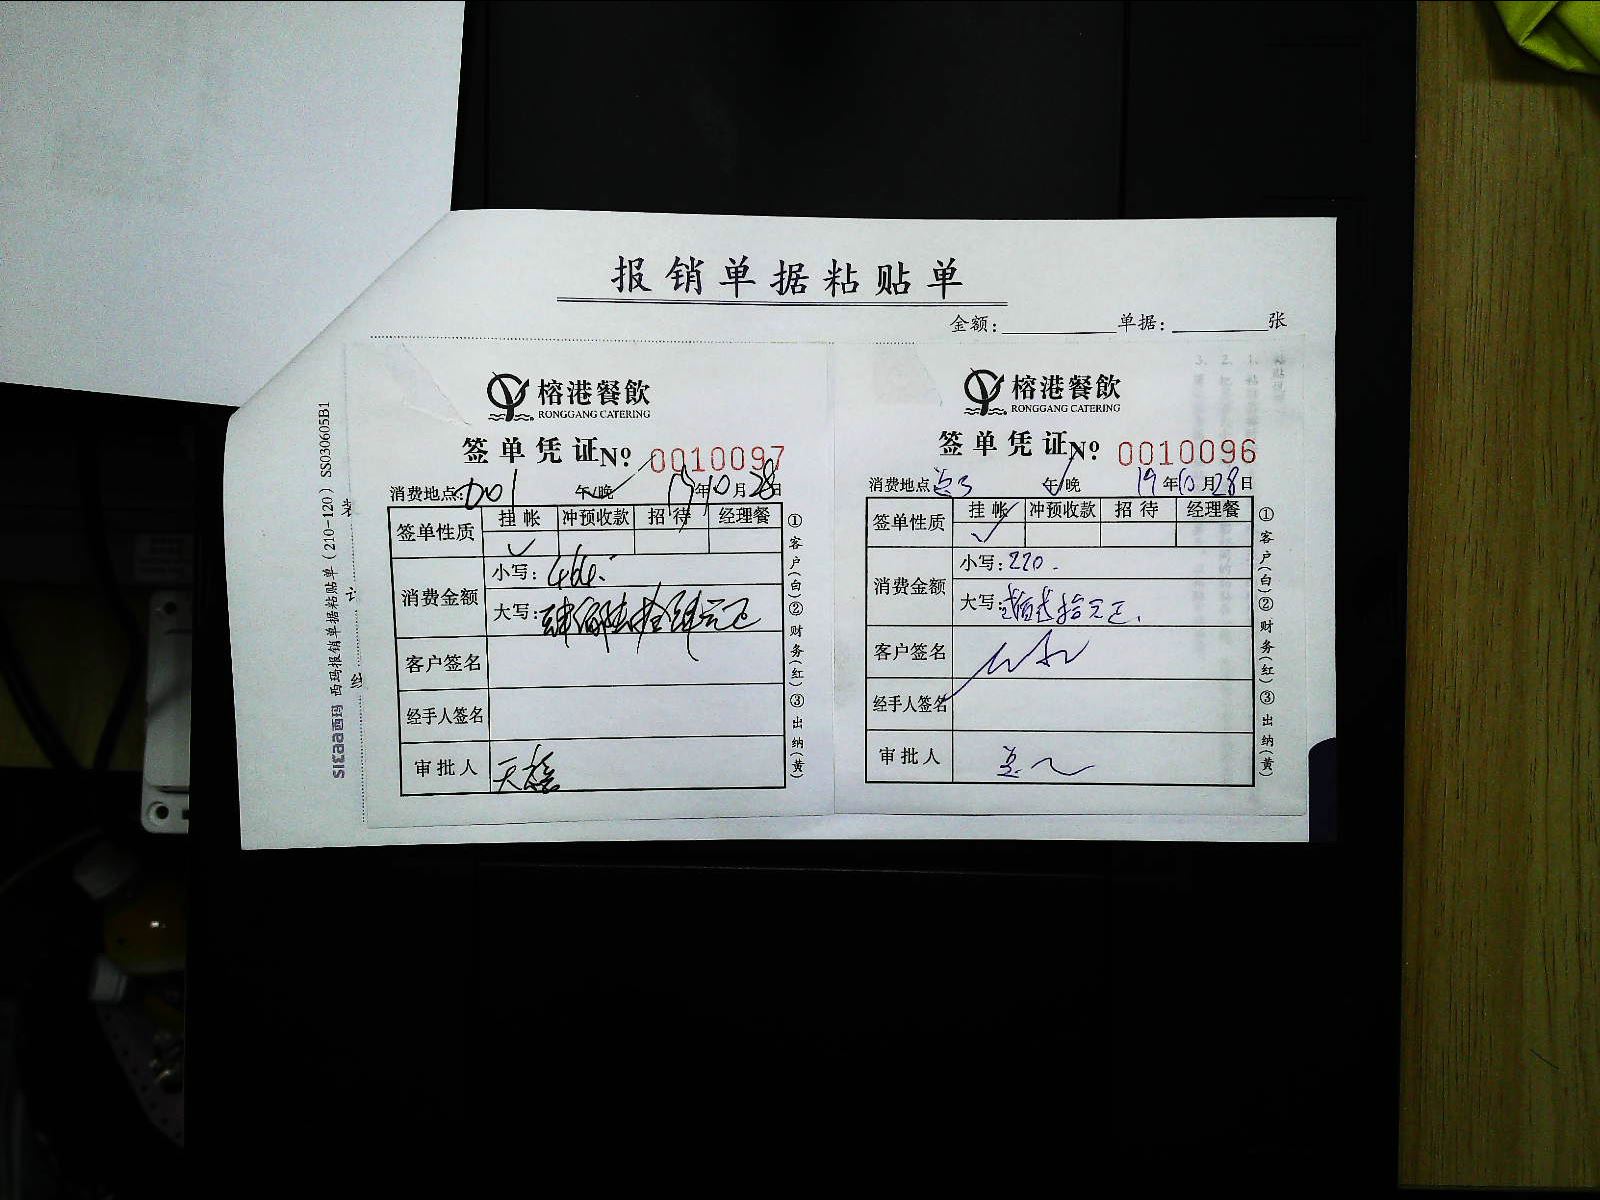 报销单据粘贴单
金额:
单据:
张
SIMAA西玛 西玛报销单据粘贴单(210-120) SS030605B1
装
订
线
榕港餐飲
RONGGANG CATERING
签单凭证 No. 0010097
消费地点: D01 午/晚 19年10月28日
签单性质 挂帐 冲预收款 招待 经理餐
✓
消费金额
小写: 464.
大写: 肆佰陆拾肆元正
客户签名
经手人签名
审批人
①客户(白)②财务(红)③出纳(黄)
榕港餐飲
RONGGANG CATERING
签单凭证 No. 0010096
消费地点 午/晚 19年10月28日
签单性质 挂帐 冲预收款 招待 经理餐
✓
消费金额
小写: 220.
大写: 贰佰贰拾元正.
客户签名
经手人签名
审批人
①客户(白)②财务(红)③出纳(黄)